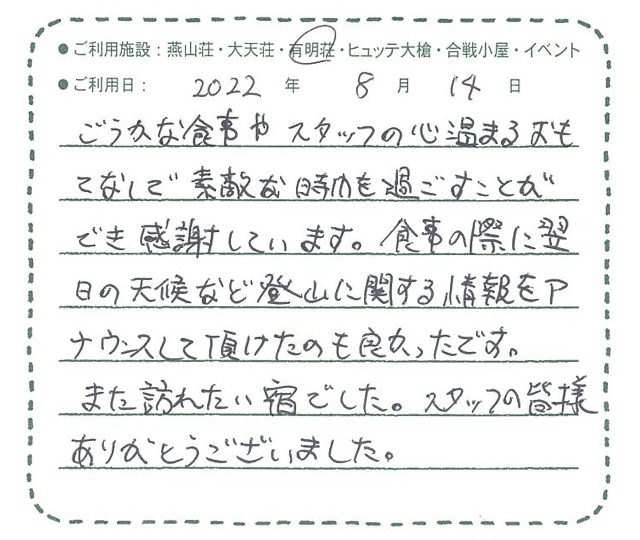 ●ご利用施設：燕山荘・大天荘・有明荘・ヒュッテ大槍・合戦小屋・イベント
●ご利用日： 2022 年 8 月 14 日
ごうかな食事や スタッフの心温まるおも
てなしで 素敵な時間を過ごすことが
でき感謝しています。食事の際に翌
日の天候など登山に関する情報をア
ナウンスして頂けたのも良かったです。
また訪れたい宿でした。スタッフの皆様
ありがとうございました。